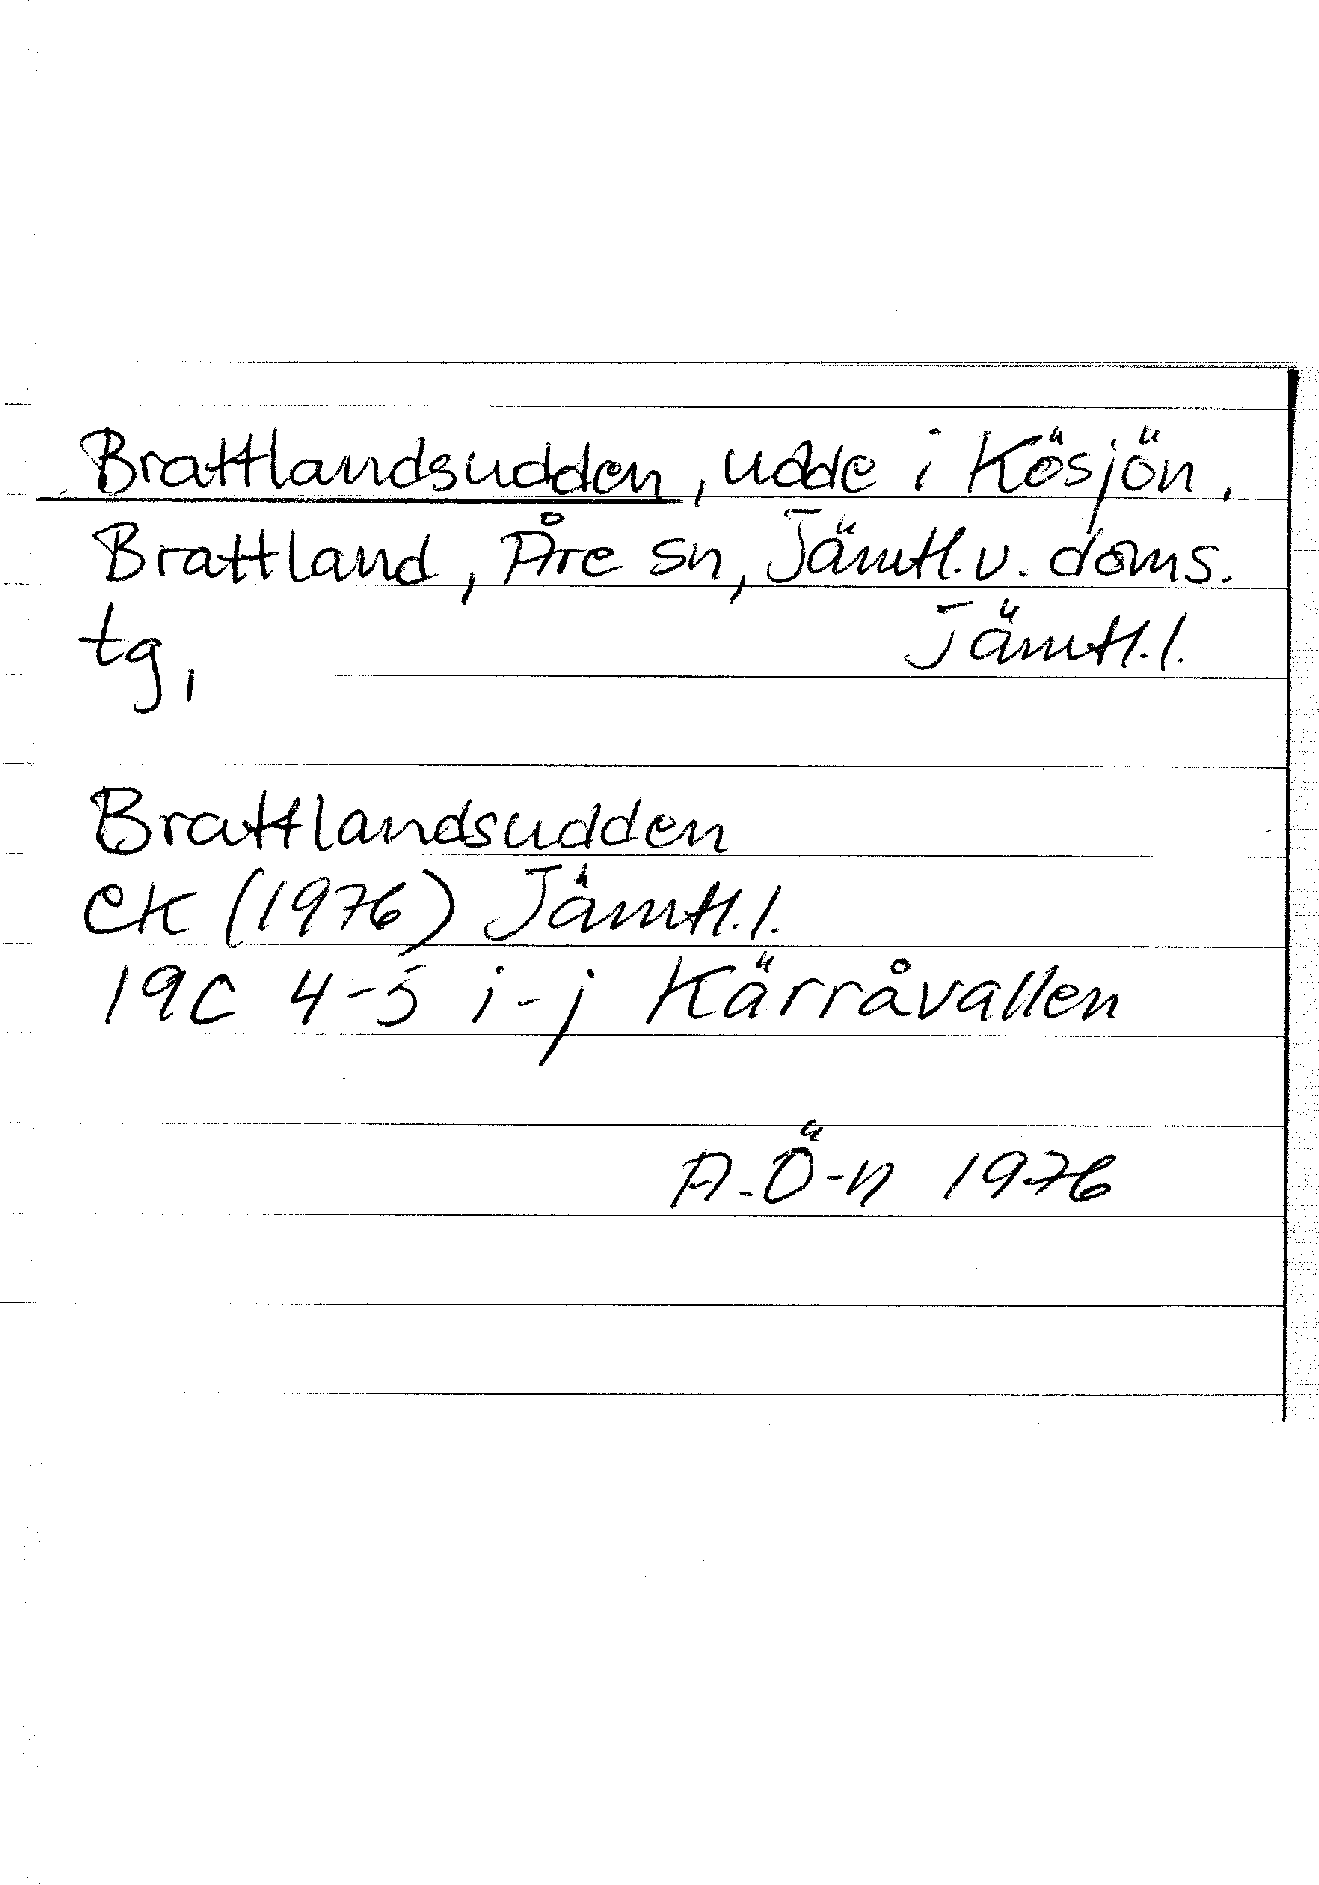 Brattlandsudden, udde i Kösjön,
Brattland, Åre sn, Jämtl.v. doms.
tg, Jämtl.l.
Brattlandsudden
EK (1976) Jämtl.l.
19C 4-5 i-j Kärråvallen
A.Ö-n 1976